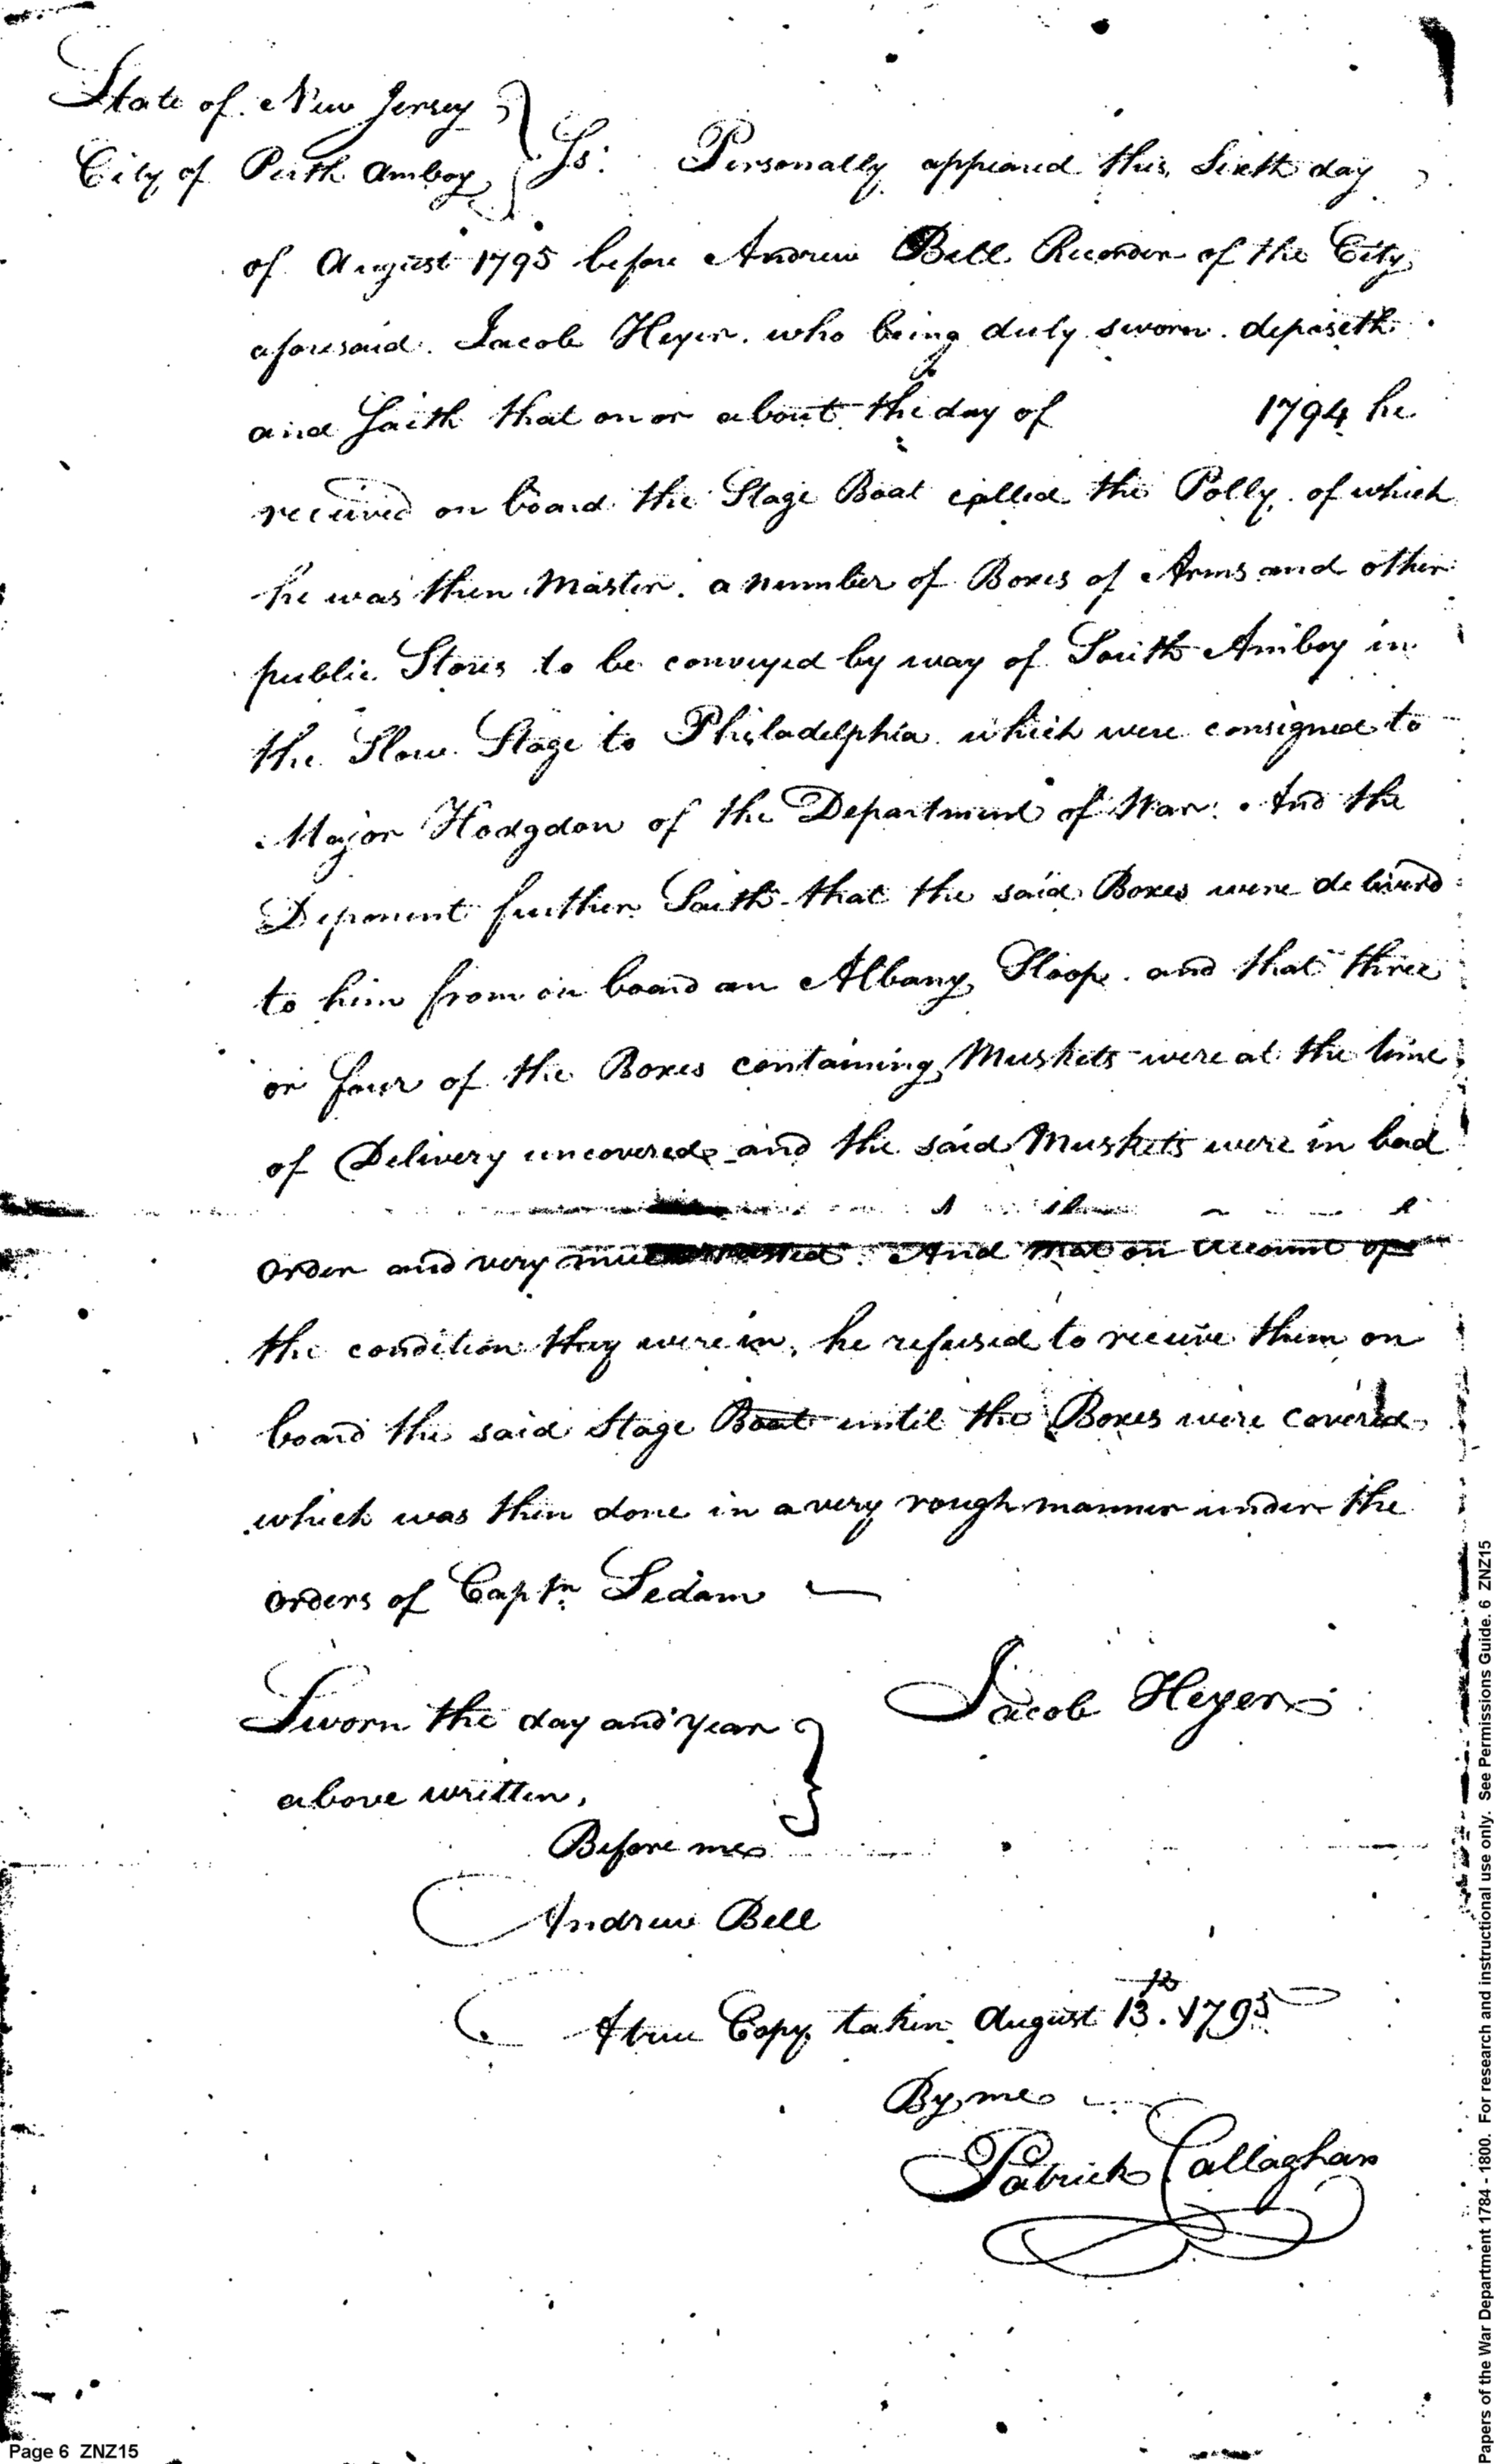 State of New Jersey
City of Perth Amboy } Ss: Personally appeared this Sixth day
of August 1795 before Andrew Bell Recorder of the City
aforesaid. Jacob Heyer. who being duly sworn. deposeth
and Saith that on or about the day of 1794 he
received on board the Stage Boat called the Polly. of which
he was then Master. a number of Boxes of Arms and other
public Stores to be conveyed by way of South Amboy in
the Slow Stage to Philadelphia which were consigned to
Major Hodgdon of the Department of War. And the
Deponent further Saith that the said Boxes were deliverd
to him from on board an Albany Sloop. and that three
or four of the Boxes containing Muskets were at the time
of Delivery uncovered and the said Muskets were in bad
order and very much rusted. And that on account of
the condition they were in, he refused to receive them on
board the said Stage Boat until the Boxes were covered
which was then done in a very rough manner under the
orders of Captn. Sedam
Jacob Heyer
Sworn the day and year }
above written,
Before me
Andrew Bell
A true Copy taken August 13th. 1795
By me
Patrick Callaghan
Page 6 ZNZ15
Papers of the War Department 1784 - 1800. For research and instructional use only. See Permissions Guide. 6 ZNZ15